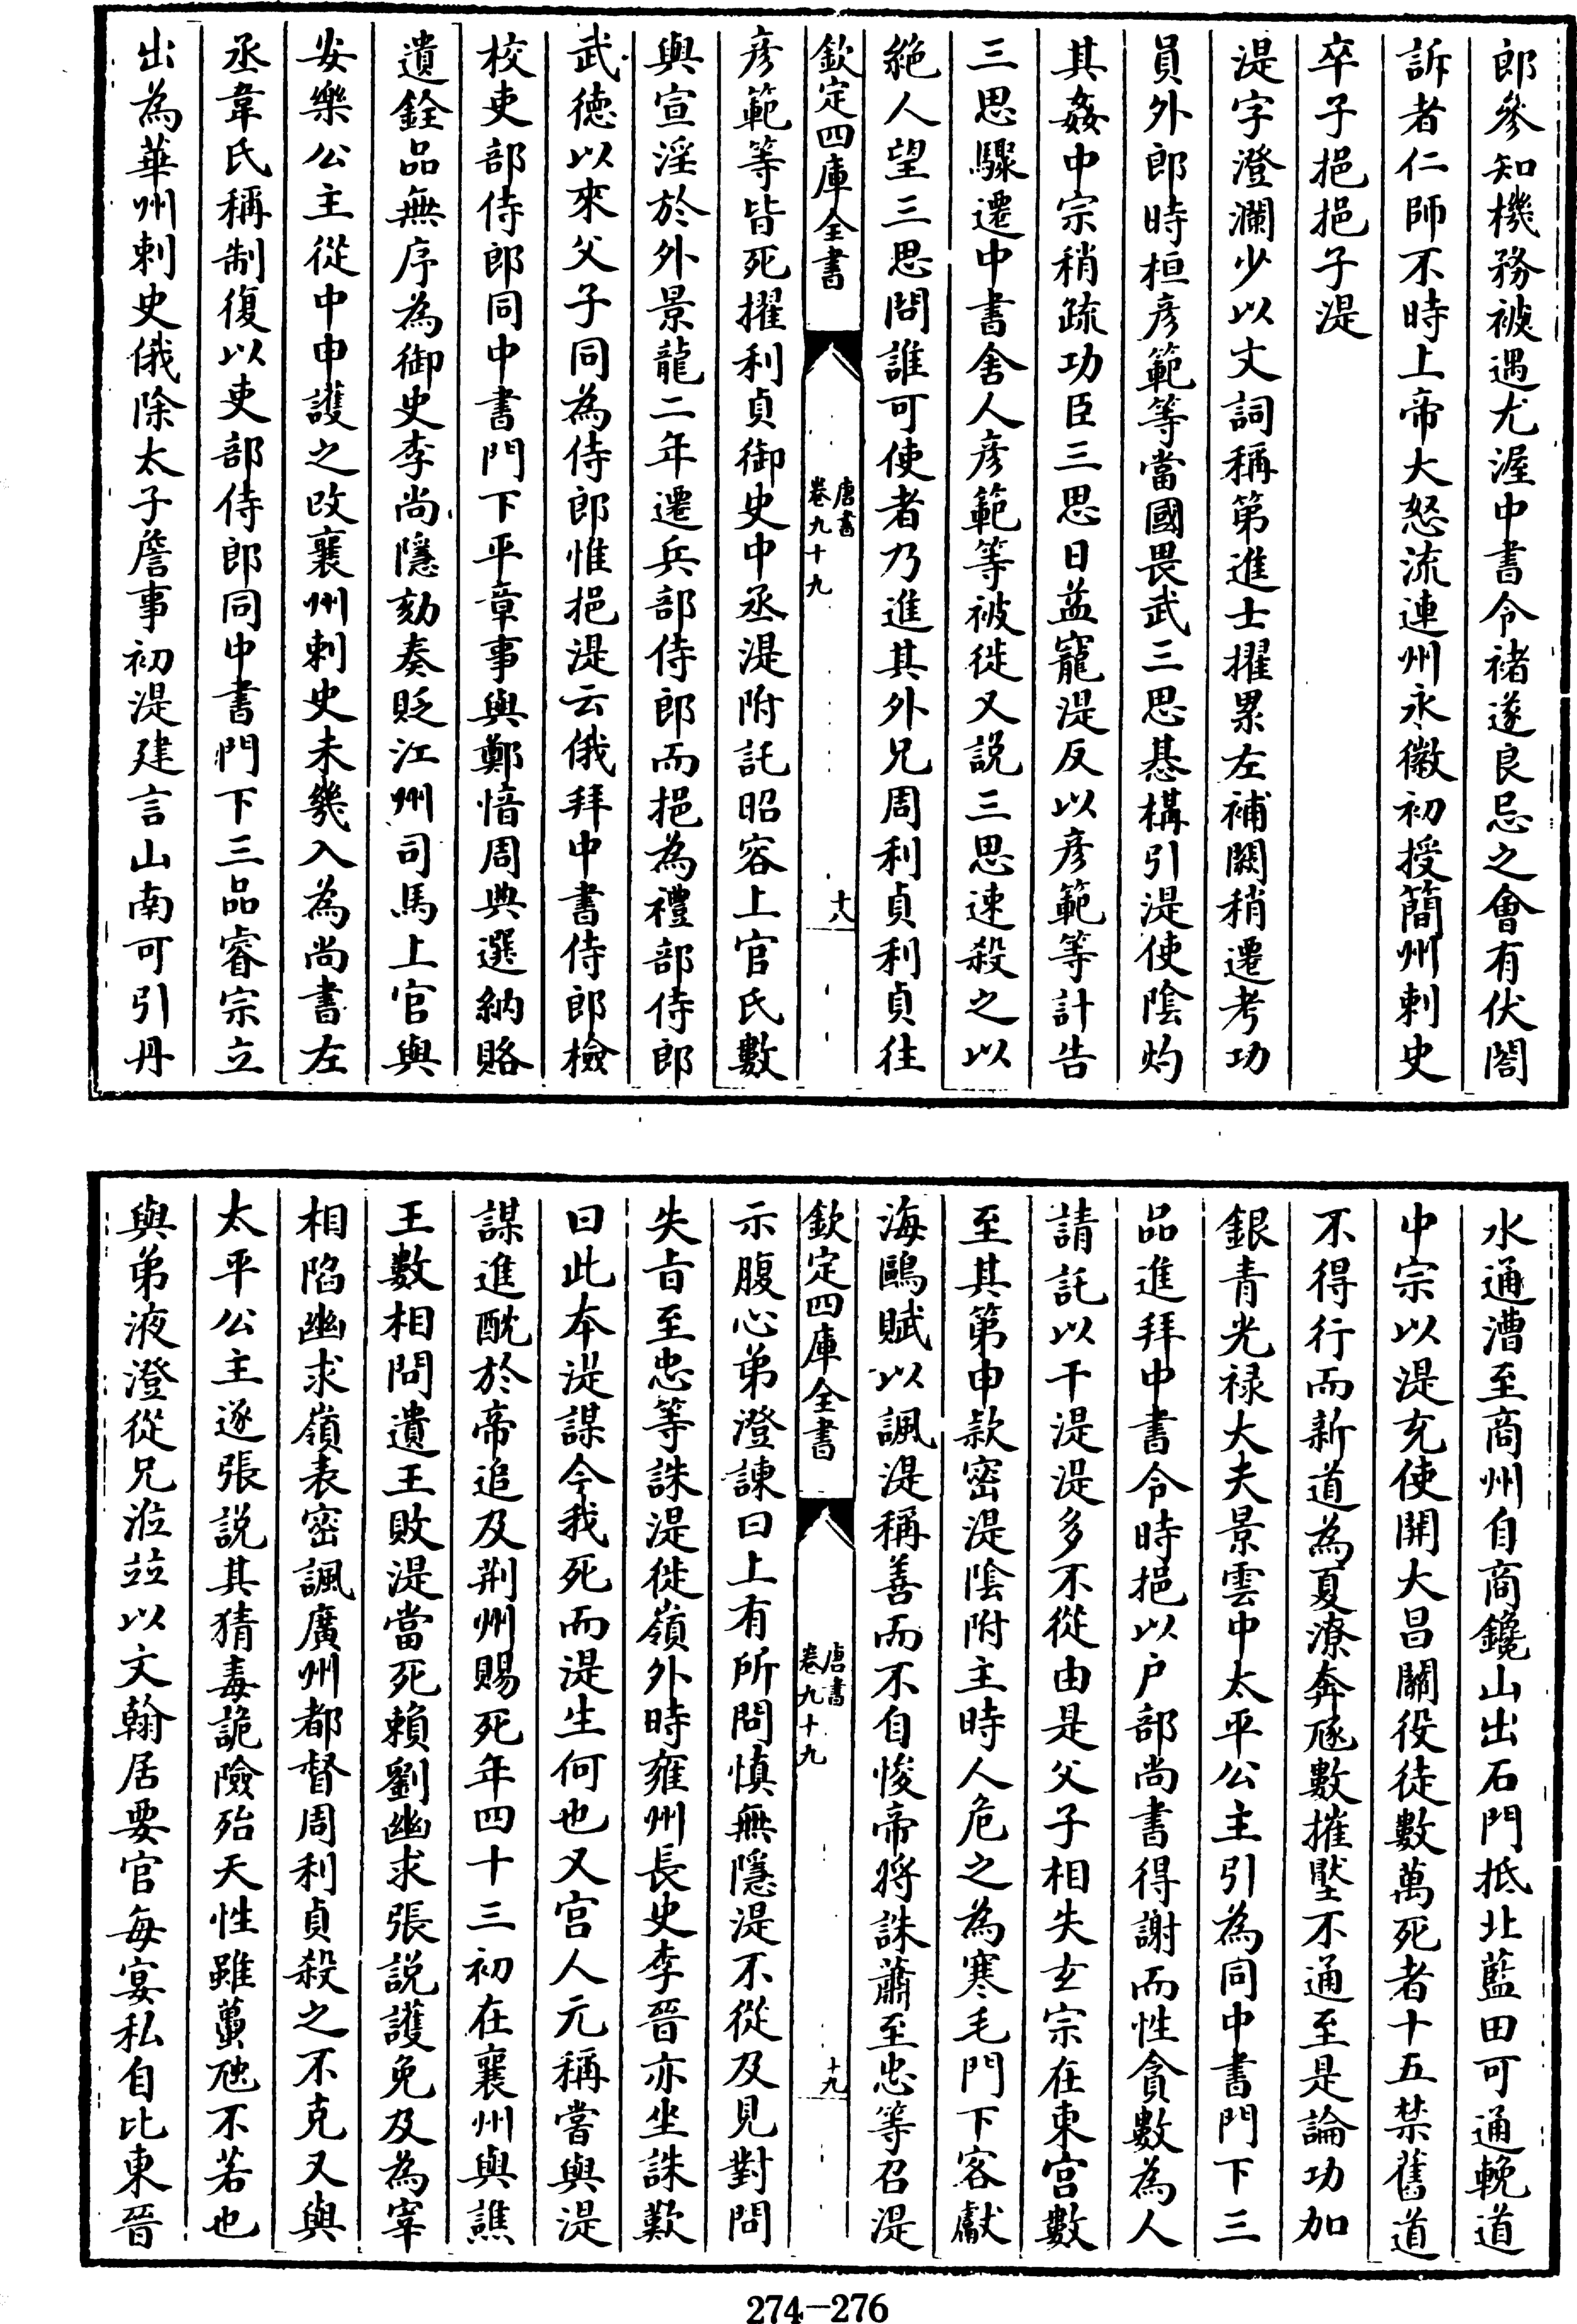 郎參知機務被遇尤渥中書令褚遂良忌之會有伏閤
訴者仁師不時上帝大怒流連州永徽初授簡州刺史
卒子挹挹子湜
湜字澄瀾少以文詞稱第進士擢累左補闕稍遷考功
員外郎時桓彥範等當國畏武三思惎構引湜使陰灼
其姦中宗稍疏功臣三思日益寵湜反以彥範等計告
三思驟遷中書舍人彥範等被徙又説三思速殺之以
絶人望三思問誰可使者乃進其外兄周利貞利貞往
欽定四庫全書
唐書
卷九十九
十八
彥範等皆死擢利貞御史中丞湜附託昭容上官氏數
與宣淫於外景龍二年遷兵部侍郎而挹為禮部侍郎
武德以來父子同為侍郎惟挹湜云俄拜中書侍郎檢
校吏部侍郎同中書門下平章事與鄭愔周典選納賂
遺銓品無序為御史李尚隱劾奏貶江州司馬上官與
安樂公主從中申護之改襄州刺史未幾入為尚書左
丞韋氏稱制復以吏部侍郎同中書門下三品睿宗立
出為華州刺史俄除太子詹事初湜建言山南可引丹
水通漕至商州自商鑱山出石門抵北藍田可通輓道
中宗以湜充使開大昌關役徒數萬死者十五禁舊道
不得行而新道為夏潦奔豗數摧壓不通至是論功加
銀青光禄大夫景雲中太平公主引為同中書門下三
品進拜中書令時挹以户部尚書得謝而性貪數為人
請託以干湜湜多不從由是父子相失玄宗在東宫數
至其第申款密湜陰附主時人危之為寒毛門下客獻
海鷗賦以諷湜稱善而不自悛帝將誅蕭至忠等召湜
欽定四庫全書
唐書
卷九十九
十九
示腹心弟澄諫曰上有所問慎無隱湜不從及見對問
失㫖至忠等誅湜徙嶺外時雍州長史李晉亦坐誅歎
曰此本湜謀今我死而湜生何也又宫人元稱嘗與湜
謀進酖於帝追及荆州賜死年四十三初在襄州與譙
王數相問遺王敗湜當死賴劉幽求張説護免及為宰
相陷幽求嶺表密諷廣州都督周利貞殺之不克又與
太平公主逐張説其猜毒詭險殆天性雖蠆虺不若也
與弟液澄從兄涖竝以文翰居要官每宴私自比東晉
274－276